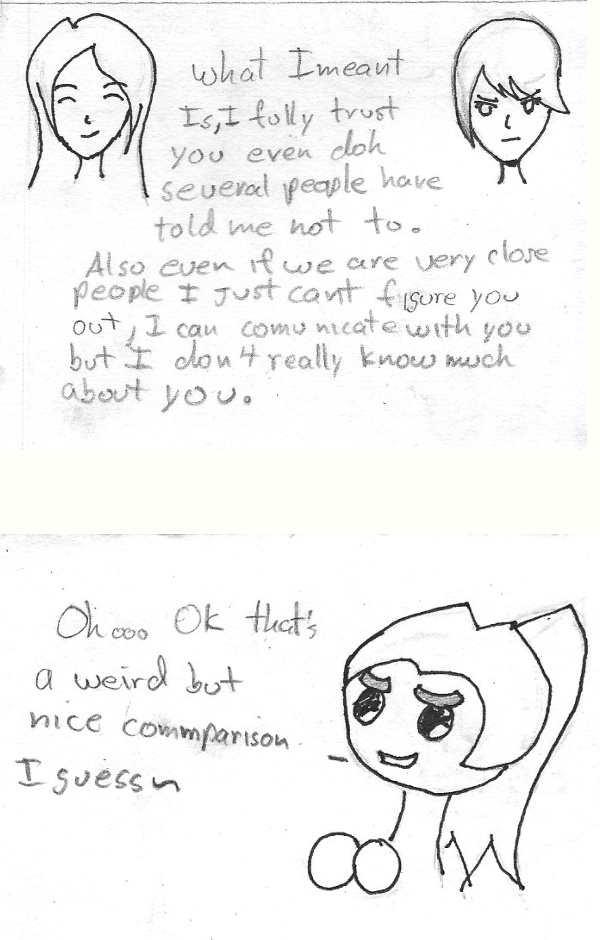 What I meant
Is, I fully trust
you even doh
several people have
told me not to.
Also even if we are very close
people I just cant figure you
out, I can comunicate with you
but I don't really know much
about you.
Oh ooo Ok that's
a weird but
nice commparison
I guess~